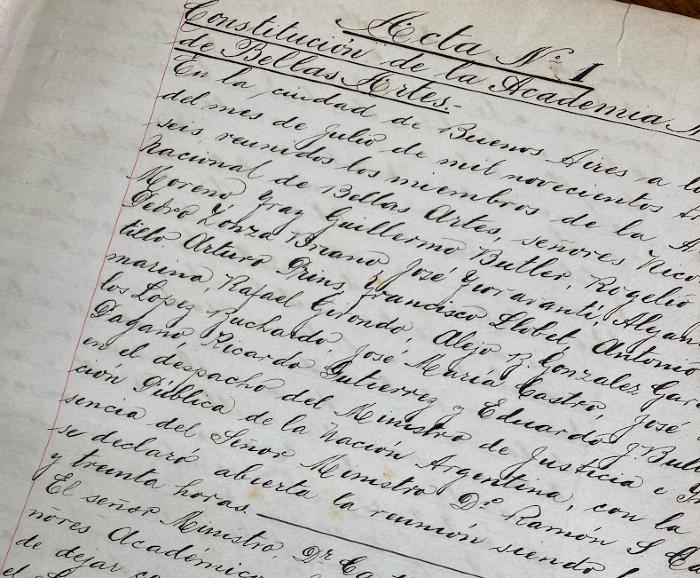 Acta Nº 1
Constitución de la Academia
de Bellas Artes.-
En la ciudad de Buenos Aires a
del mes de Julio de mil novecientos
seis reunidos los miembros de la
Nacional de Bellas Artes, señores
Moreno, Fray Guillermo Butler, Rogelio
Pedro Zonza Briano, José Fioravanti,
tillo Arturo Prins, Francisco Llobet, Antonio
marina Rafael Girondo, Alejo B. Gonzalez
los Lopez Buchardo, José María Castro, José
Pagano, Ricardo Gutierrez y Eduardo J. Bull
en el despacho del Ministro de Justicia e
ción Pública de la Nación Argentina, con la
sencia del Señor Ministro Dr. Ramón S
se declaró abierta la reunión siendo
y treinta horas.
El señor Ministro Dr
ñores Académic
de dejar